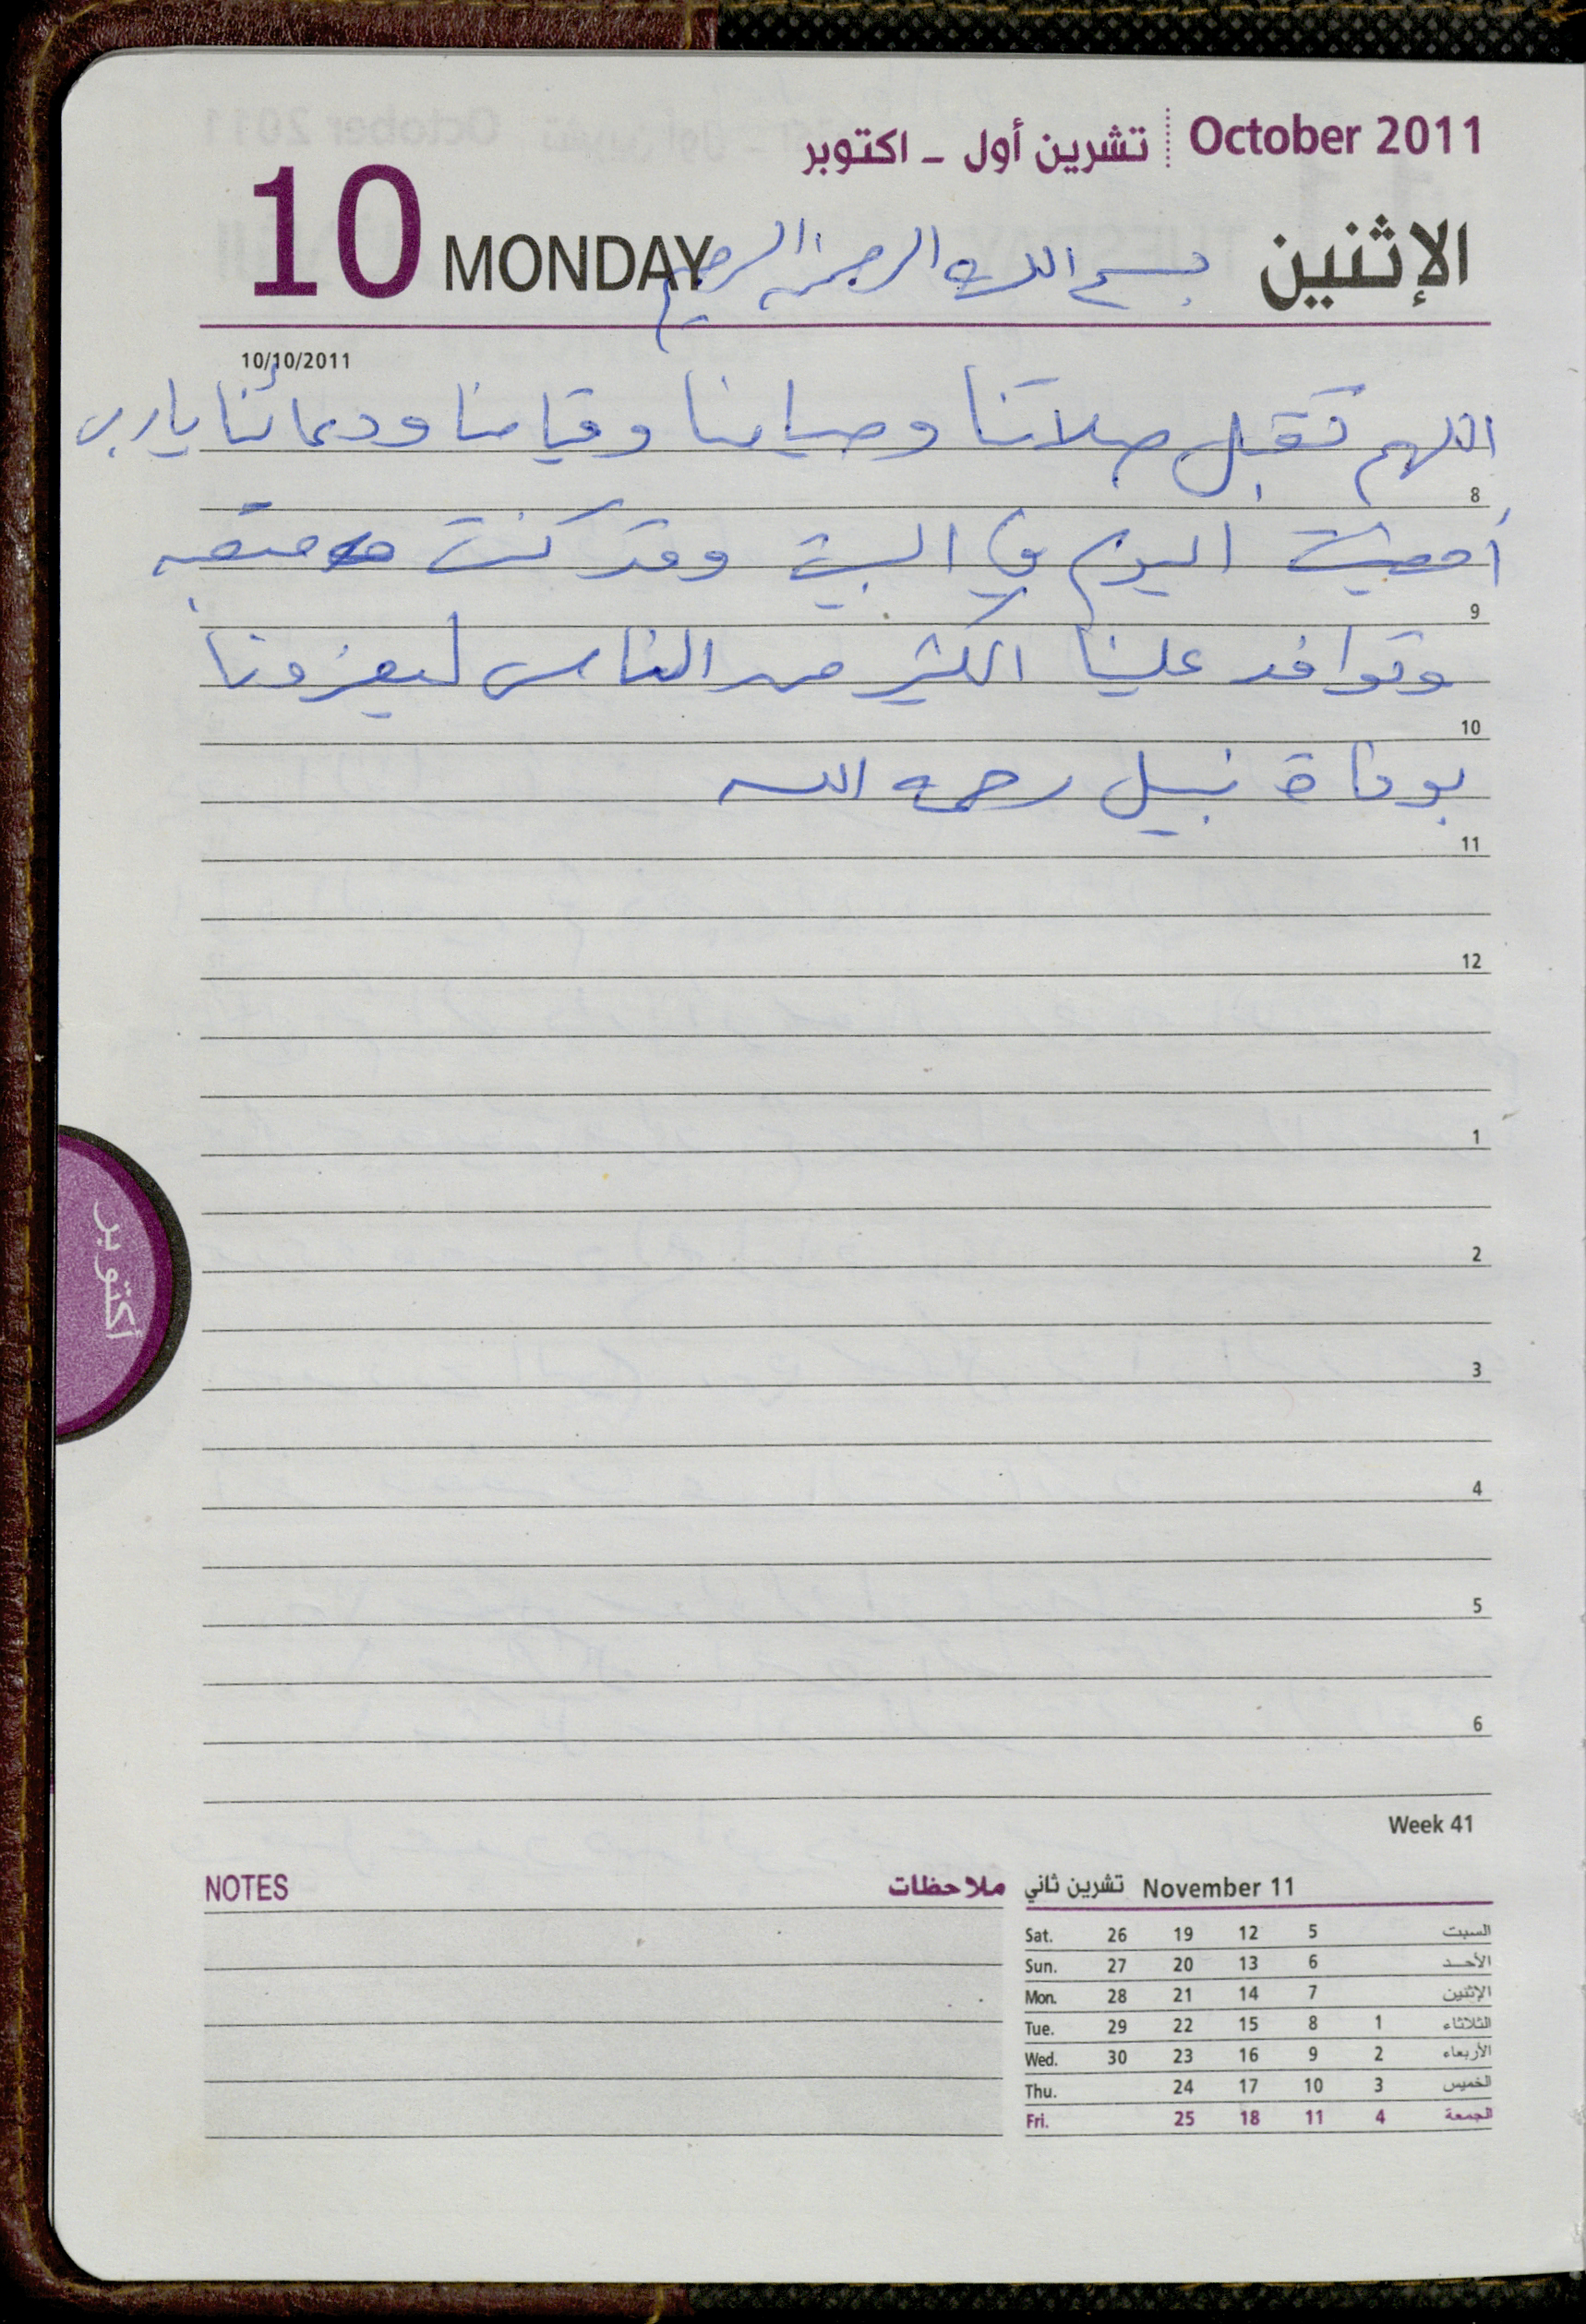 October 2011 تشرين أول - اكتوبر
10 MONDAY الإثنين
بسم الله الرحمن الرحيم
10/10/2011
اللهم تقبل صلاتنا وصيامنا وقيامنا ودعائنا يا رب
8
أمضيت اليوم في البيت وقد كنت متعبه
9
وتوافد علينا الكثير من الناس ليعزونا
10
بوفاة نبيل رحمه الله
11
12
1
2
أكتوبر
3
4
5
6
Week 41
NOTES ملاحظات
تشرين ثاني November 11
Sat. 26 19 12 5 السبت
Sun. 27 20 13 6 الأحد
Mon. 28 21 14 7 الإثنين
Tue. 29 22 15 8 1 الثلاثاء
Wed. 30 23 16 9 2 الأربعاء
Thu. 24 17 10 3 الخميس
Fri. 25 18 11 4 الجمعة